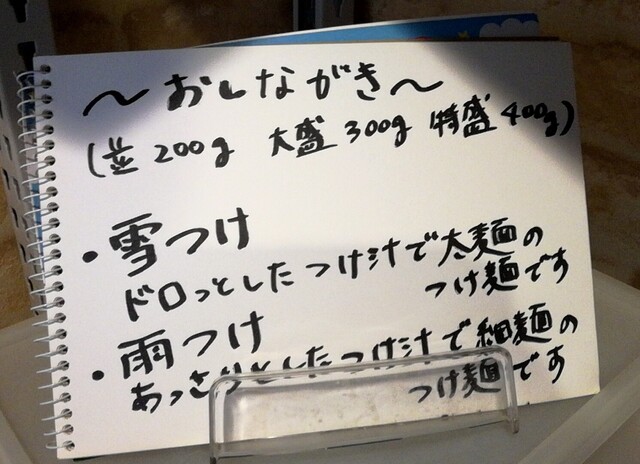 〜おしながき〜
(並 200g 大盛 300g 特盛 400g)
・雪つけ
ドロっとしたつけ汁で太麺の
つけ麺です
・雨つけ
あっさりとしたつけ汁で細麺の
つけ麺です